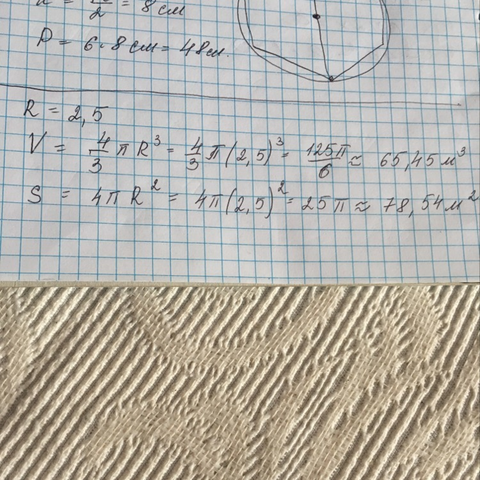 2 = 8 см
P = 6·8 см = 48 см.
R = 2,5
V = 4/3 π R³ = 4/3 π (2,5)³ = 125π/6 ≈ 65,45 м³
S = 4π R² = 4π (2,5)² = 25π ≈ 78,54 м²